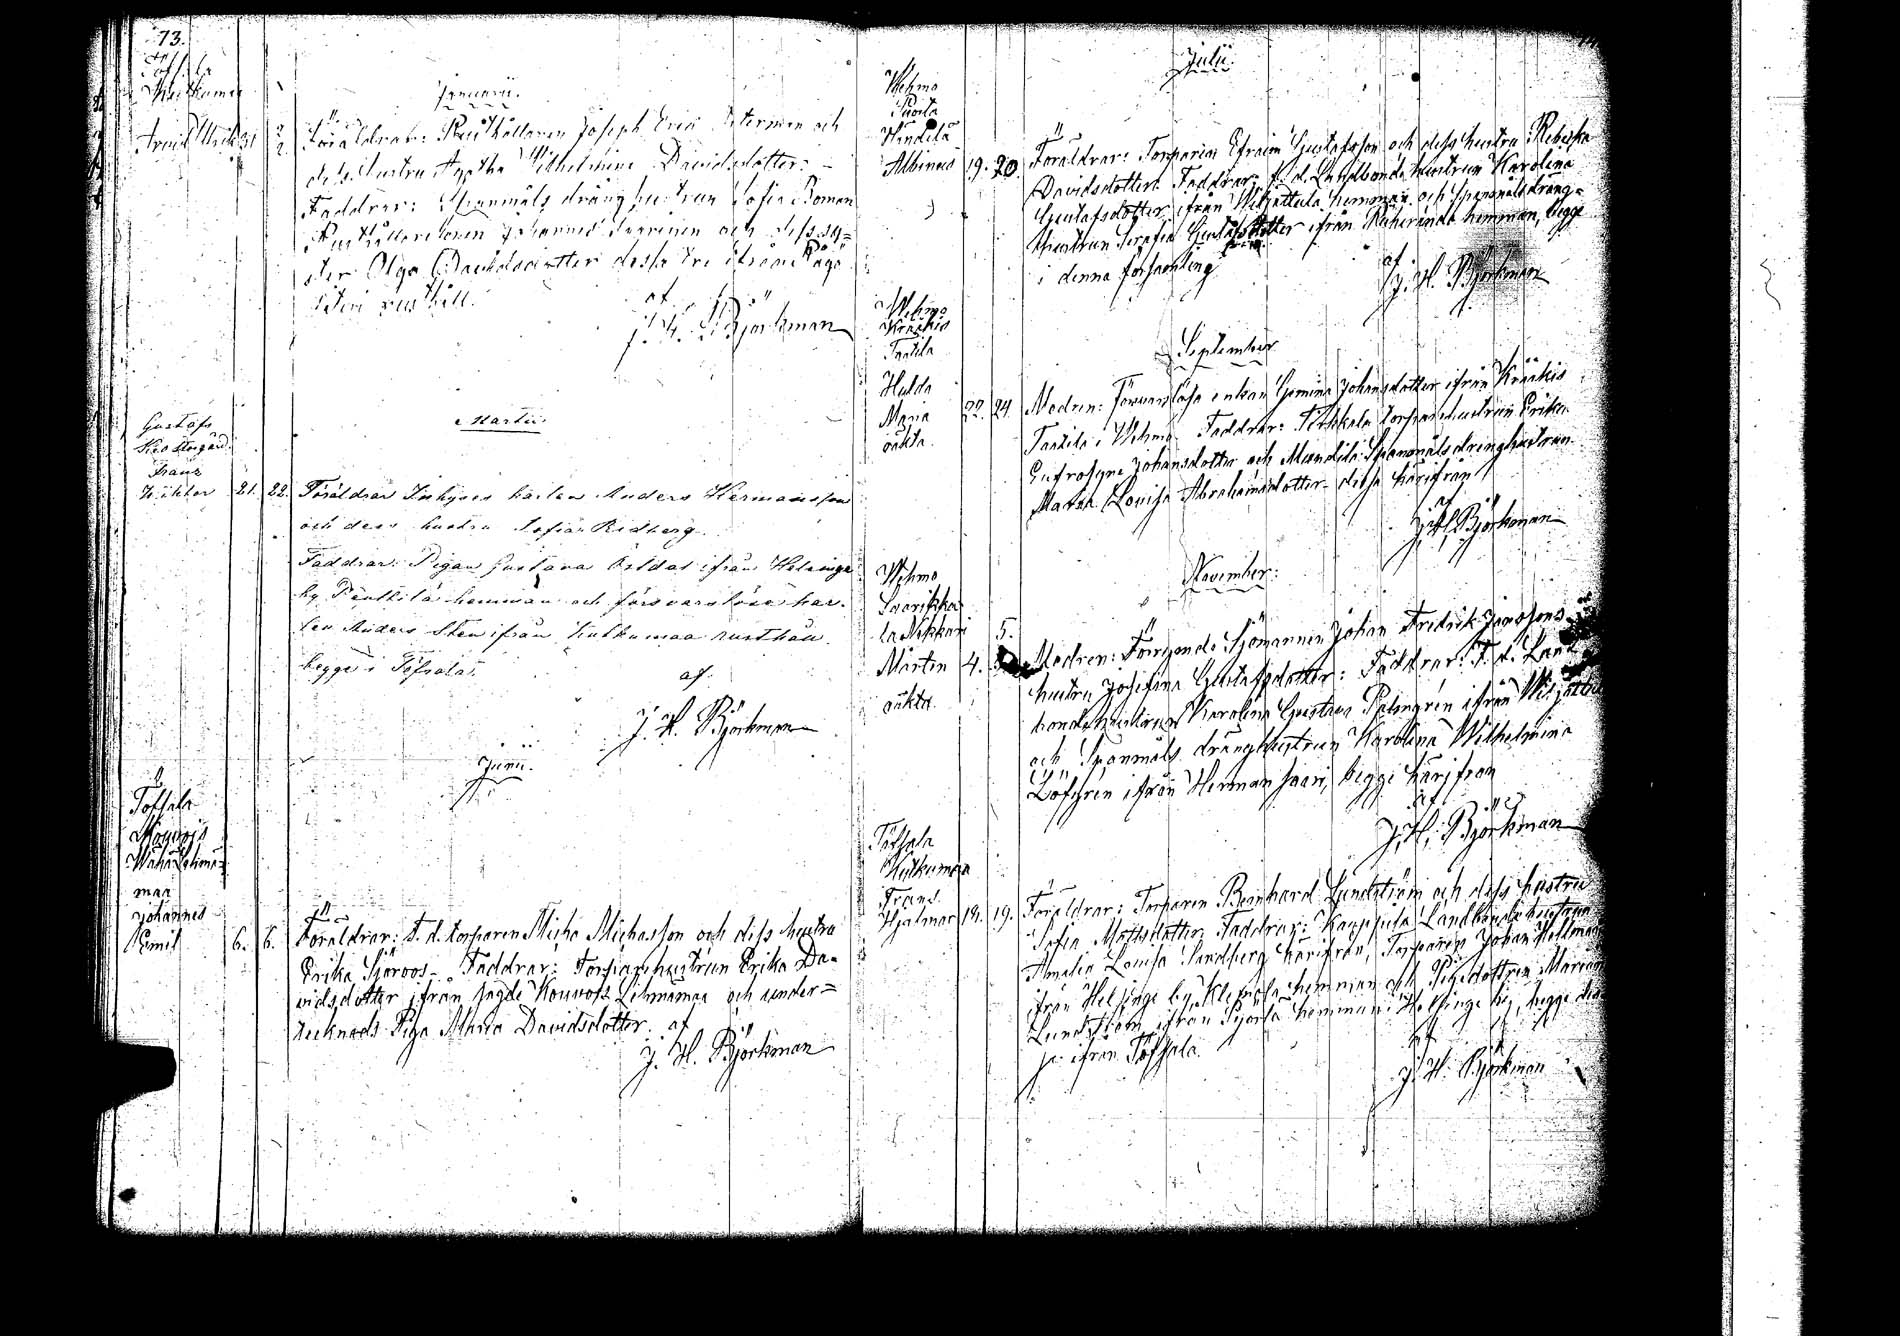 73.
Januarii.
Arvid Ulrik 31 2/2
Föräldrar: Rusthållaren Joseph Eric Peterman och
dess hustru Agatha Wilhelmina Davidsdotter. —
Faddrar: Spanmåls dräng hustrun Sofia Boman
Rusthållaresonen Johannes och dess sy=
ster Olga Davidsdotter dessa tre ifrån
rusthåll.
af
J. H. Björkman
Martii.
Gustafs
Frans
Wiktor 21. 22.
Föräldrar Inhyses karlen Anders Hermansson
och dess hustru Sofia Ridberg
Faddrar: Pigan Gustava Östdal ifrån Helsinge
by Penttilä hemman och försvarslöse kar-
len Anders Sten ifrån Kutkumaa rusthåll.
begge i Töfsala.
af
J. H. Björkman
Junii.
Töfsala
Wähä Lehmä=
maa
Johannes
Emil 6. 6.
Föräldrar: F. d. torparen Micha Michasson och dess hustru
Erika Sjöroos— Faddrar: Torparehustrun Erika Da-
vidsdotter ifrån sagde Kouvois Lehmämaa och under=
tecknads Piga Maria Davidsdotter. af
J. H. Björkman
Julii.
Wehmo
Puosta
Albinus 19. 20.
Föräldrar: Torparen Efraim Gustafsson och dess hustru Rebecka
Davidsdotter. Faddrar: f. d. Landbonde hustrun Karolina
Gustafsdotter ifrån hemman och Spanmålsdräng=
hustrun Serafia Gustafsdotter ifrån hemman, begge
i denna församling
af
J. H. Björkman
September
Wehmo
Krääkis
Taatila
Hulda
Maria 22. 24.
oäkta
Modren: Försvarslösa enkan Gemina Johansdotter ifrån Krääkis
Taatila i Wehmo Faddrar: torparehustrun Erika
Eufrosyne Johansdotter och Spanmålsdrenghustrun
Maria Lovisa Abrahamsdotter dessa härifrån
af
J. H. Björkman
November.
Wehmo
Saarikko
la Nikkari 5.
Mårten 4.
oäkta
Modren: Förrymde Sjömannen Johan Fredrik Janssons
hustru Josefina Gustafsdotter: Faddrar: F. d. Land
bondehustrun Karolina Gustava Palmgrén ifrån
och Spanmåls dränghustrun Karolina Wilhelmina
Löfgrén ifrån Hermansaari, begge härifrån
af
J. H. Björkman
Töfsala
Kutkumaa
Frans
Hjalmar 18. 19.
Föräldrar: Torparen Bernhard Lundström och dess hustru
Sofia Mattsdotter. Faddrar: Kauppila Landbondehustrun
Amalia Lovisa Sandberg härifrån, Torparen Johan Hellman
ifrån Helsinge by Klemola hemman och Pigedottren Mariana
Lundström ifrån hemman i Helsinge by, begge des
sa ifrån Töfsala.
af
J. H. Björkman